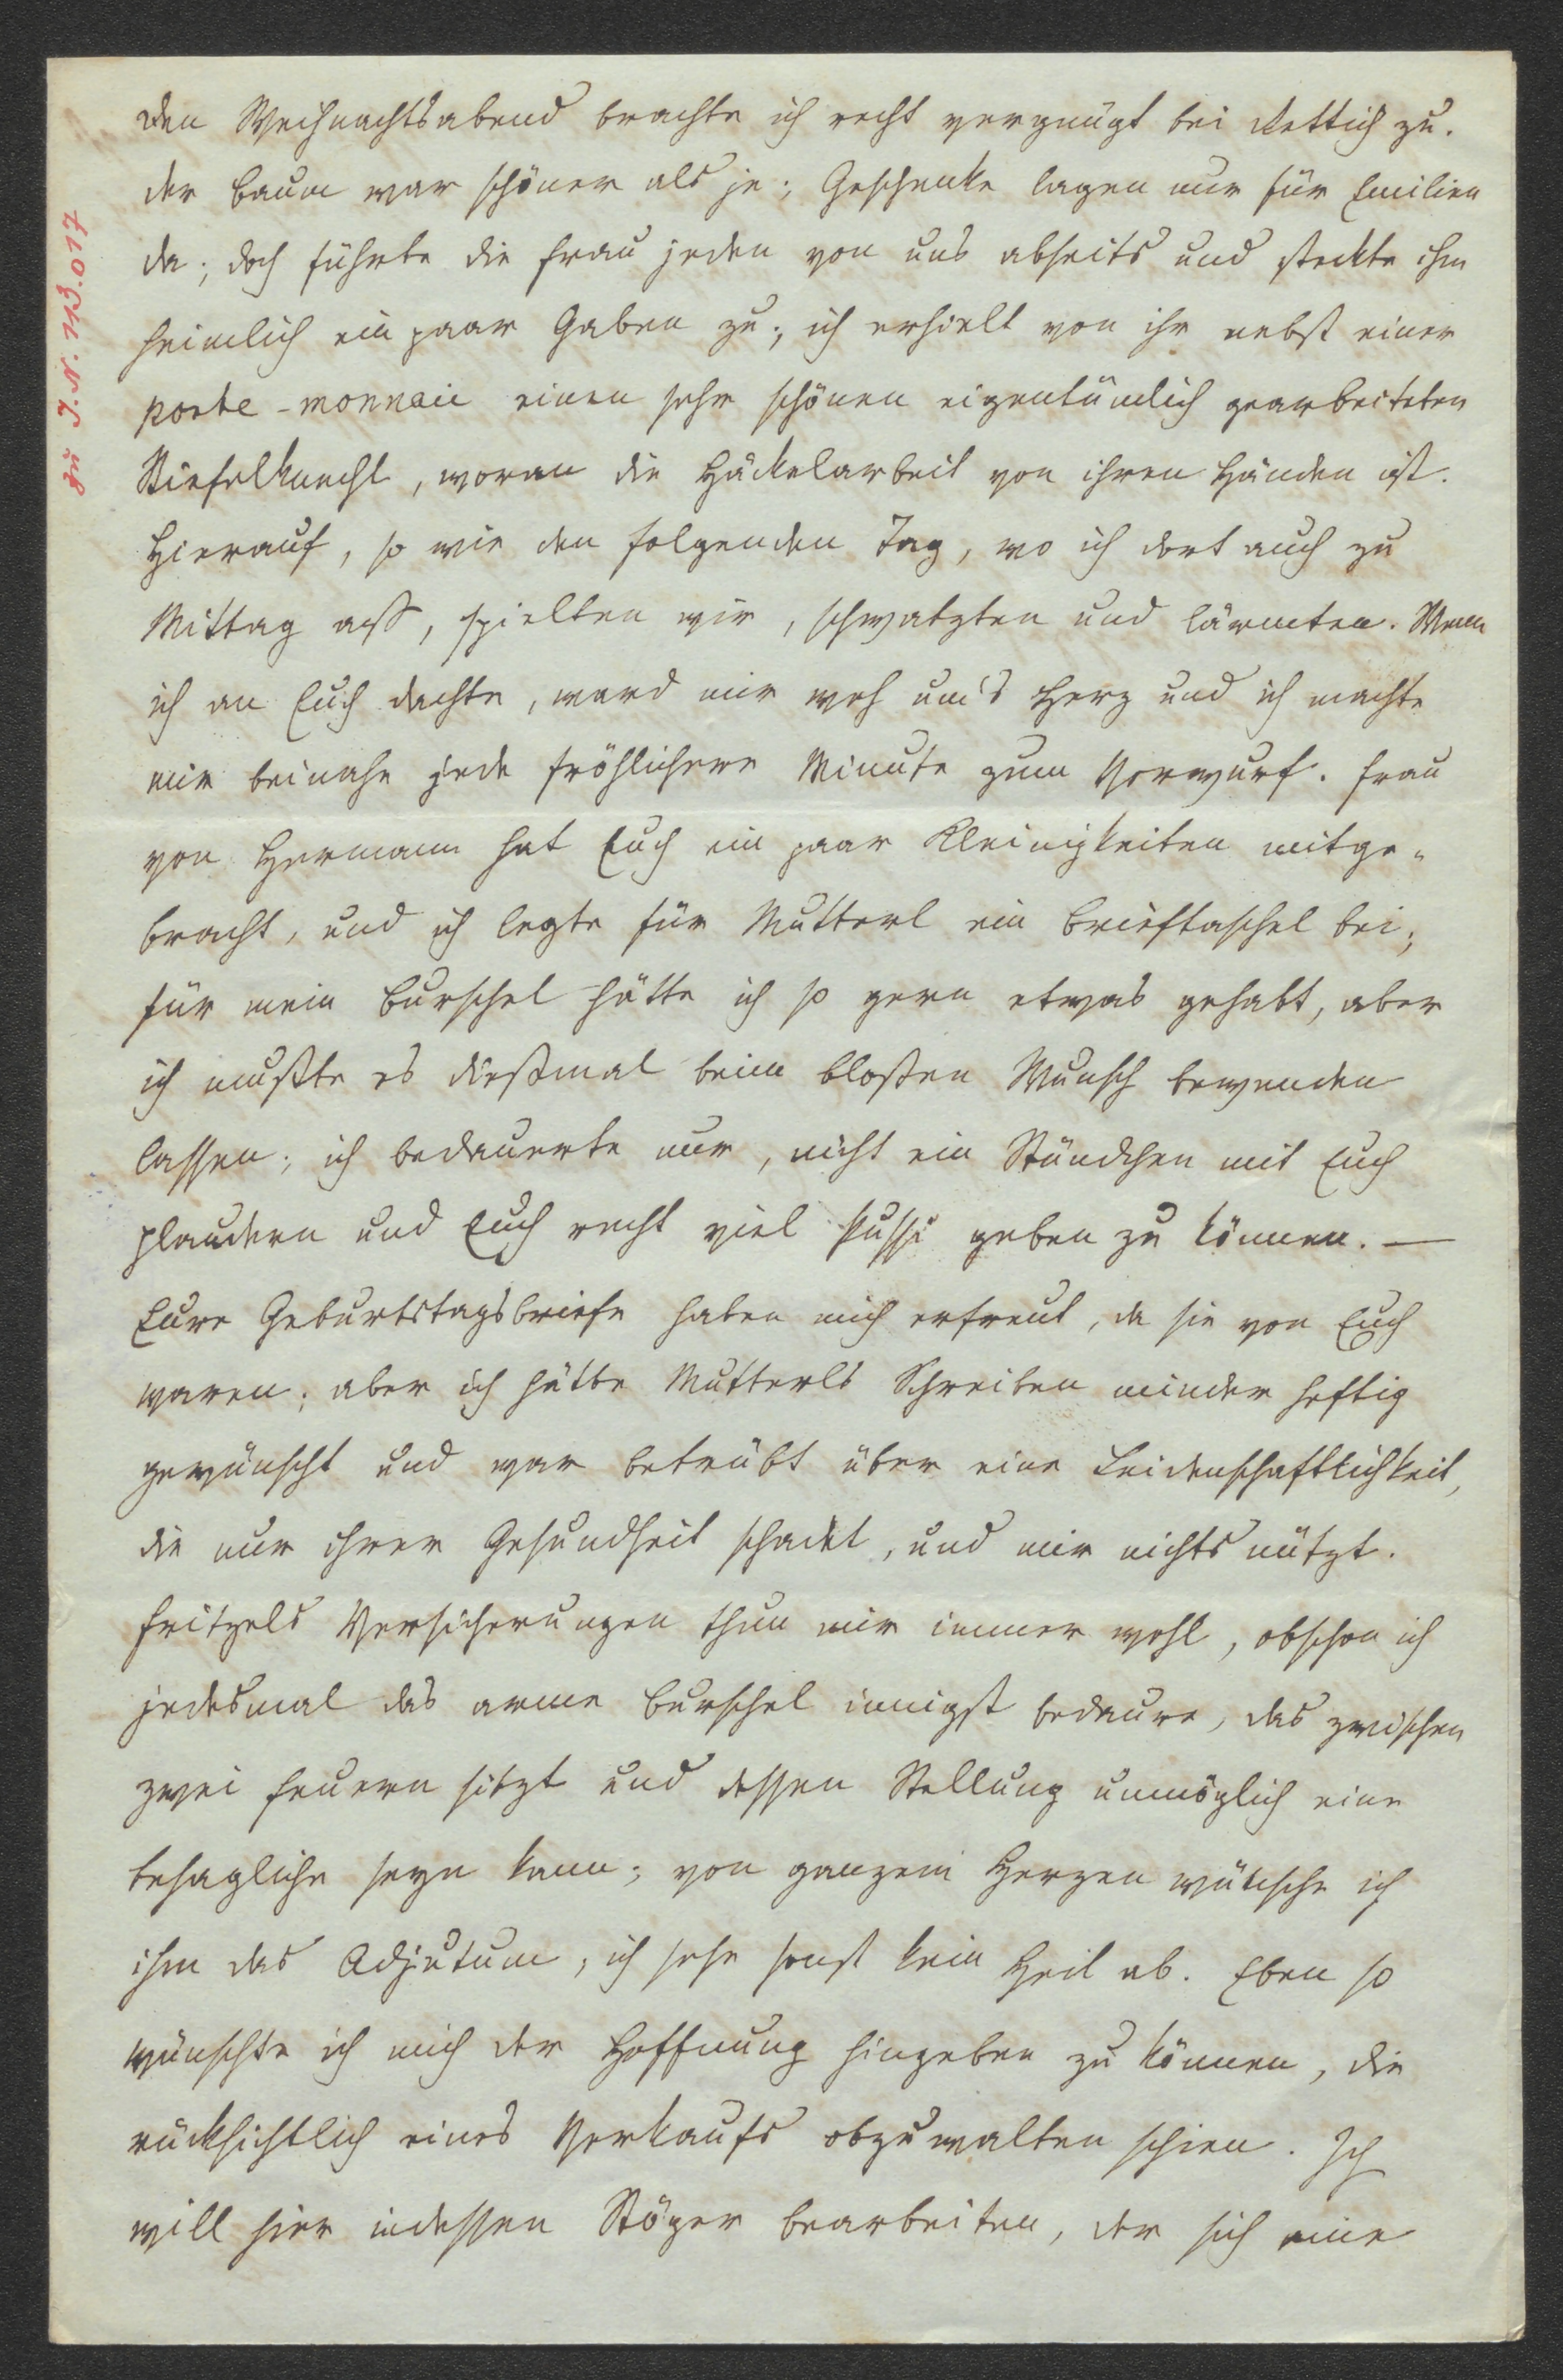 Den Weihnachtsabend brachte ich recht vergnügt bei Rettich zu.
Der Baum war schöner als je; Geschenke lagen nur für Emilien
da; doch führte die Frau jeden von uns abseits und steckte ihm
heimlich ein paar Gaben zu; ich erhielt von ihr nebst einer
porte-monnaie einen sehr schönen eigentümlich gearbeiteten
Stiefelknecht, woran die Häckelarbeit von ihren Händen ist.
Hierauf, so wie den folgenden Tag, wo ich dort auch zu
Mittag aß, spielten wir, schwatzten und lärmten. Wenn
ich an Euch dachte, ward mir weh um's Herz und ich machte
mir beinahe jede fröhlichere Minute zum Vorwurf. Frau
von Hermann hat Euch ein paar Kleinigkeiten mitge-
bracht, und ich legte für Mutterl ein Brieftaschel bei;
für mein Burschel hätte ich so gern etwas gehabt, aber
ich mußte es dießmal beim bloßen Wunsch bewenden
lassen; ich bedauerte nur, nicht ein Stündchen mit Euch
plaudern und Euch recht viel Pussi geben zu können. —
Eure Geburtstagsbriefe haben mich erfreut, da sie von Euch
waren; aber ich hätte Mutterls Schreiben minder heftig
gewünscht und war betrübt über eine Leidenschaftlichkeit,
die nur ihrer Gesundheit schadet, und mir nichts nützt.
Fritzels Versicherungen thun mir immer wohl, obschon ich
jedesmal das arme Burschel innigst bedaure, das zwischen
zwei Feuern sitzt und dessen Stellung unmöglich eine
behagliche seyn kann; von ganzem Herzen wünsche ich
ihm das Adjutum, ich sehe sonst kein Heil ab. Eben so
wünschte ich mich der Hoffnung hingeben zu können, die
rücksichtlich eines Verkaufs obzuwalten schien. Ich
will hier indessen Stöger bearbeiten, der sich eine
zu J.N. 213.017